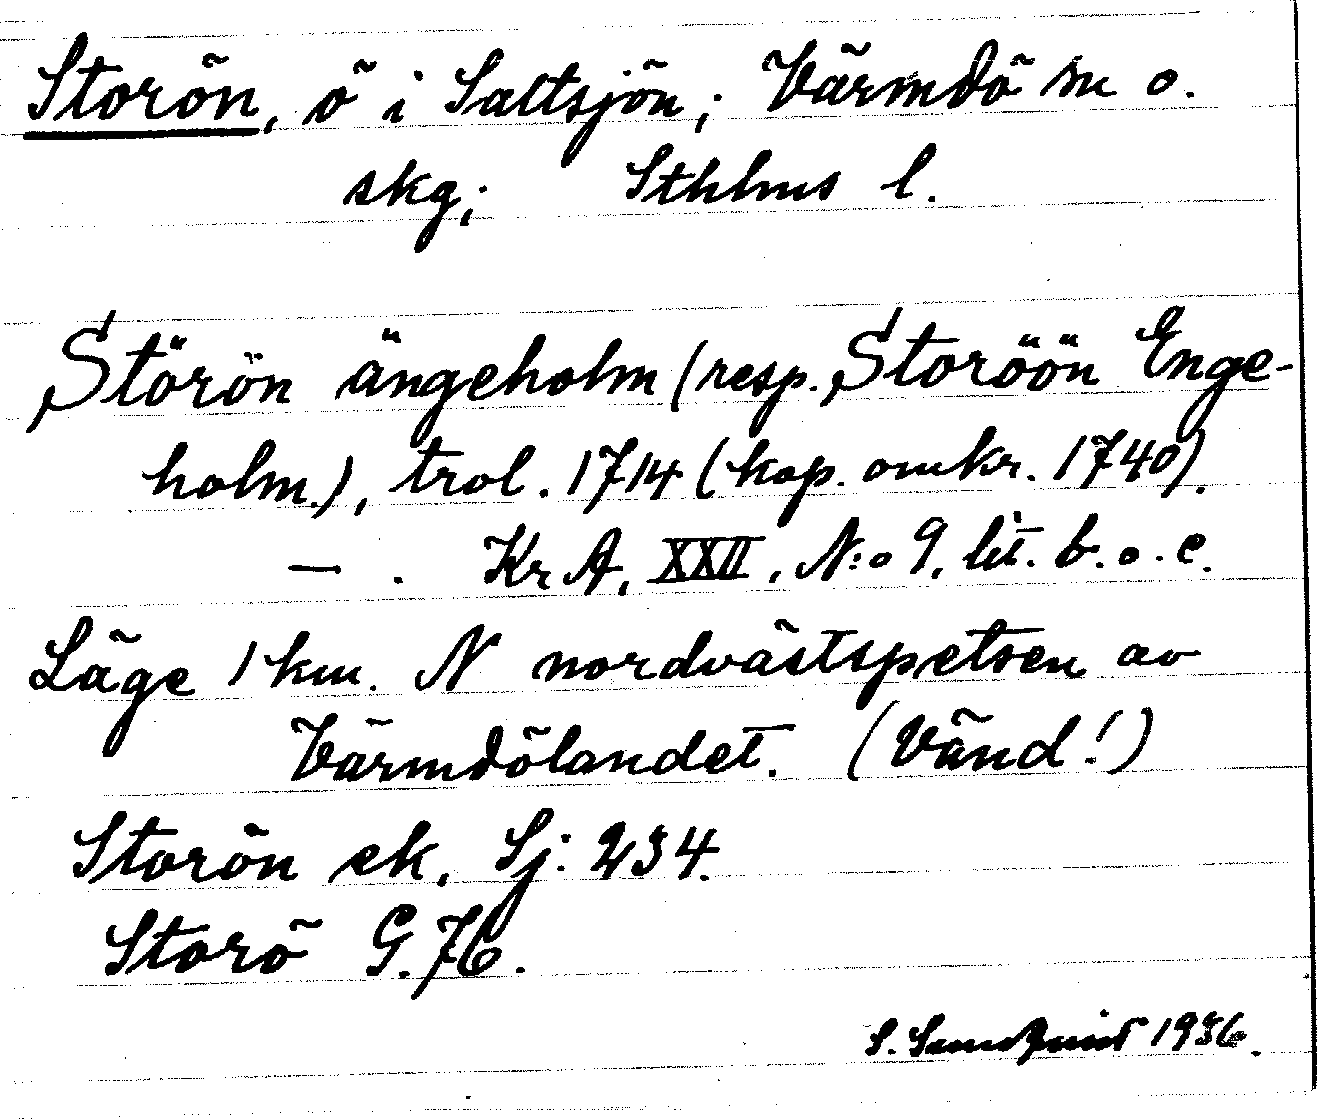 Storön, ö i Saltsjön; Värmdö sn o.
skg; Sthlms l.
Störön ängeholm (resp. Storöön Enge-
holm.), trol. 1714 (kop. omkr. 1740).
— . KrA, XXII, N:o 9, lit. b. o. c.
Läge 1 km. N nordvästspetsen av
Värmdölandet. (Vänd!)
Storön ek. Sj: 234.
Storö G. 76.
S. 1936.